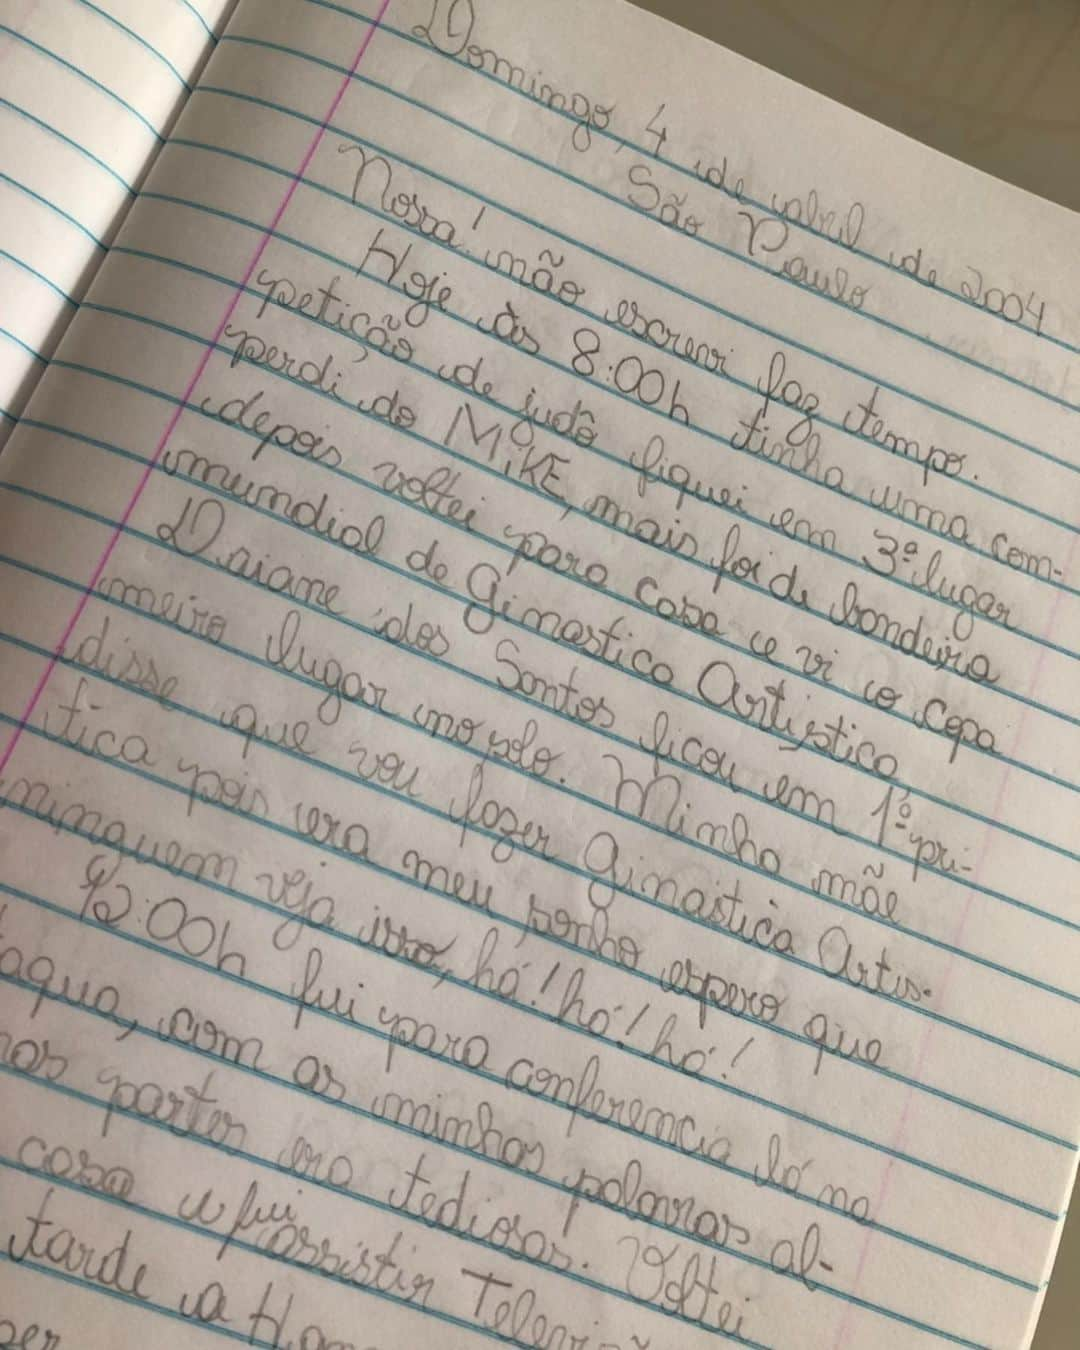 Domingo, 4 de abril de 2004
São Paulo
Nossa! não escrevi faz tempo.
Hoje às 8:00h tinha uma com-
petição de judô fiquei em 3º lugar
perdi do MiKE, mais foi de bandeira
depois voltei para casa e vi a copa
mundial de Ginastica Artistica
Daiane dos Santos ficou em 1º pri-
meiro lugar no solo. Minha mãe
disse que vou fazer Ginastica Artis-
tica pois era meu sonho espero que
ninguem veja isso, há! há! há!
12:00h fui para conferencia lá na
com as minhas palavras al-
partes era tediosas. Voltei
casa e fui assistir
tarde a